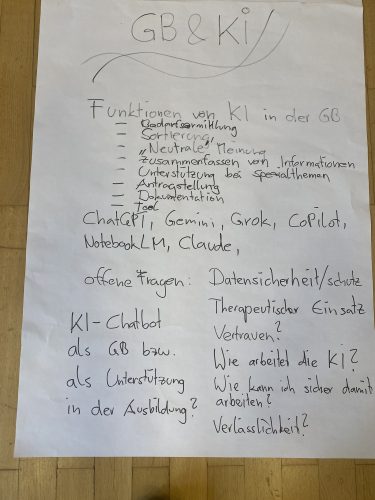 GB & Ki
Funktionen von KI in der GB
– Bedarfsermittlung
– Sortierung
– „Neutrale" Meinung
– Zusammenfassen von Informationen
– Unterstützung bei Spezialthemen
– Antragstellung
– Dokumentation
– Tool
ChatGPT, Gemini, Grok, CoPilot,
NotebookLM, Claude,
offene Fragen:
KI-Chatbot
als GB bzw.
als Unterstützung
in der Ausbildung?
Datensicherheit/schutz
Therapeutischer Einsatz
Vertrauen?
Wie arbeitet die KI?
Wie kann ich sicher damit
arbeiten?
Verlässlichkeit?